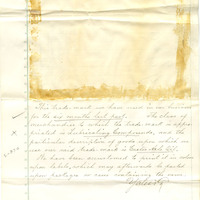 This trade mark we have used in our business
for the six months last past. The class of
merchandise to which the trade mark is appro-
priated is Lubricating Compounds, and the
particular description of goods upon which we
use said trade mark is Oil.
We have been accustomed to print it in
upon labels, which may afterwards be pasted
upon packages or cans containing the same.